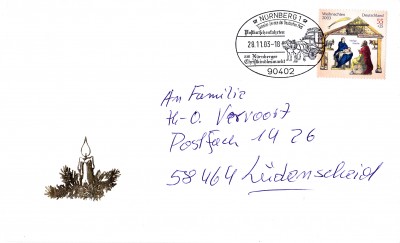 NÜRNBERG 1
Postkutschenfahrten
28.11.03-18
zum Nürnberger
Christkindlesmarkt
90402
Weihnachten
2003
Deutschland
55
An Familie
Th-O. Vervoort
Postfach 14 26
58464 Lüdenscheid